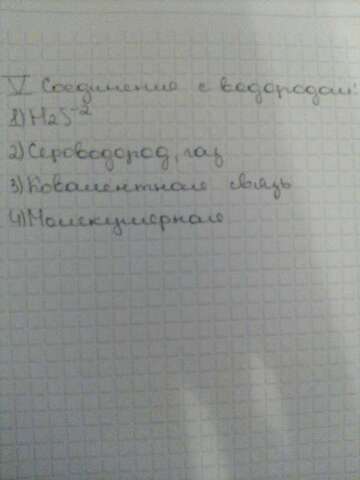 V Соединение с водородом:
1) H2S-2
2) Сероводород, газ
3) Ковалентная связь
4) Молекулярная